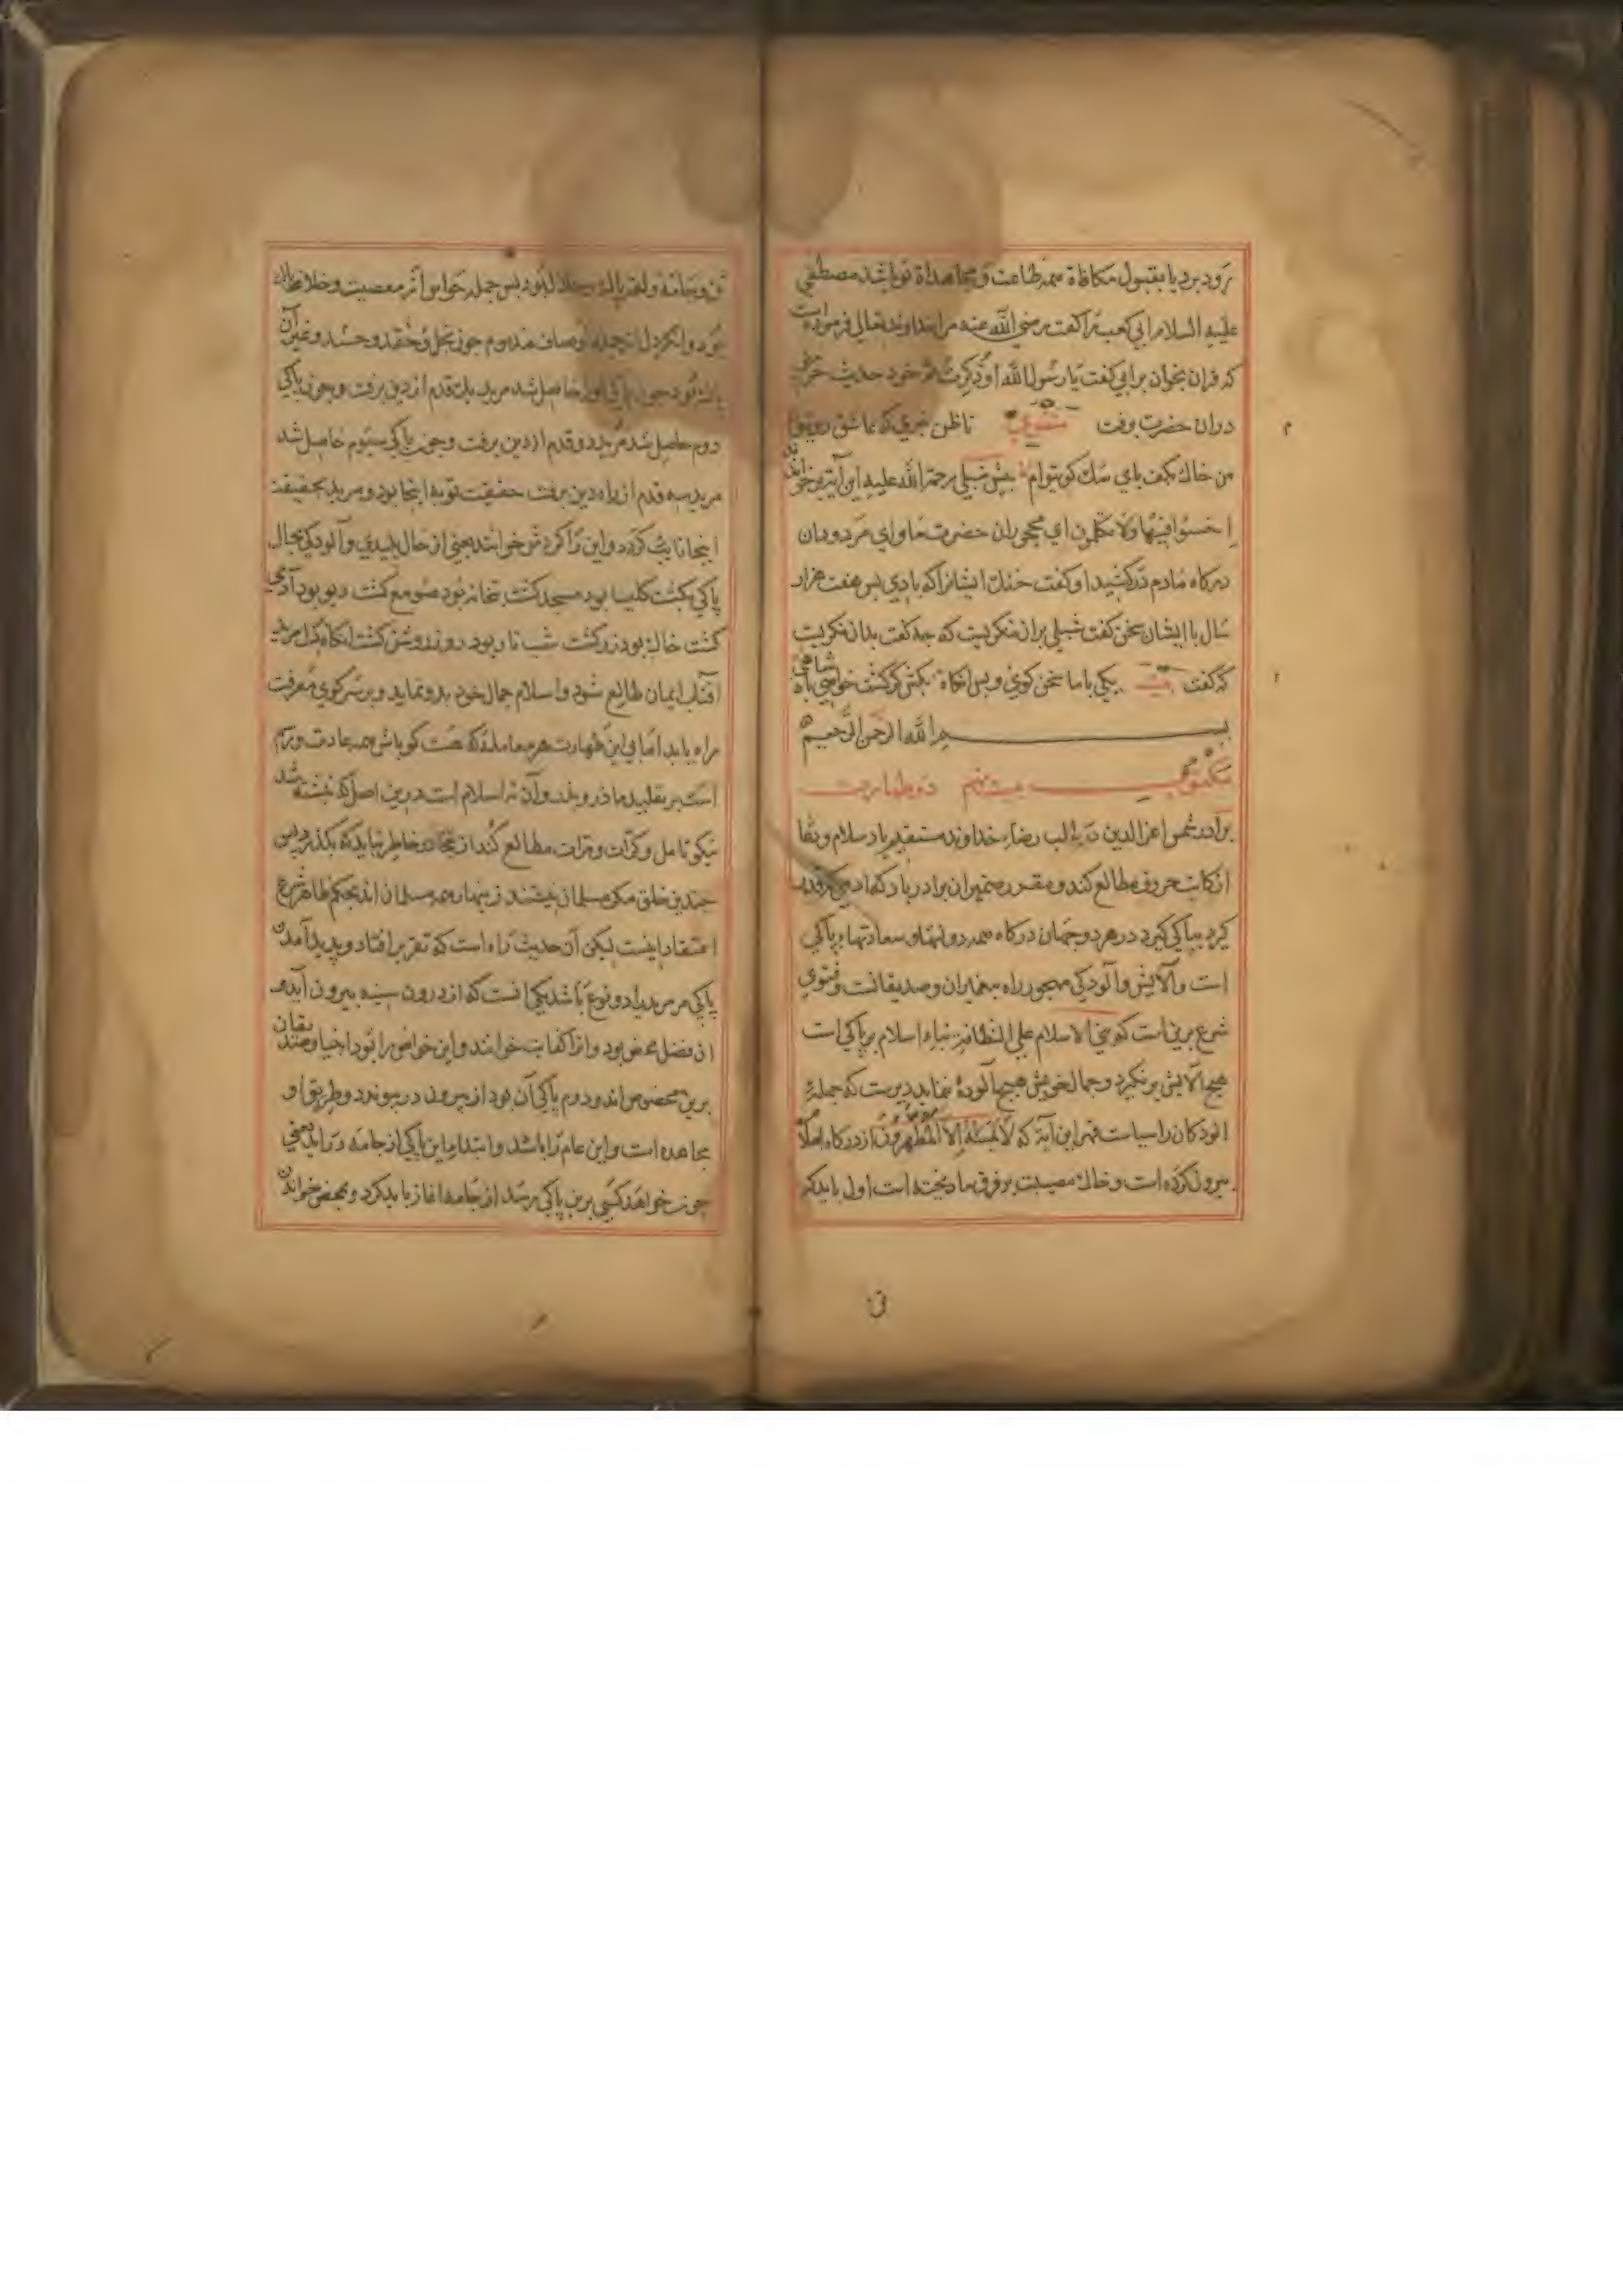 رود برد یا بقبول مکافاة همه طاعت و مجاهداة تو باشد مصطفی
علیه السلام ابی کعب را گفت رضی الله عنه مرا خداوند تعالی فرموده است
که قران بخوان بر ابی گفت یا رسول الله او ذکرت ثم خود حدیث
دران حضرت برفت مثنوی تا ظن نبری که عاشق روی توام
من خاك کف پای سك کوی توام پیش شبلی رحمة الله علیه این آیة برخواندند
اخسئوا فیها ولا تکلمون ای مهجوران حضرت ما و ای مردودان
درکاه ما دم درکشید او گفت خنك ایشانرا که بادی پس هفت هزار
سال با ایشان سخن گفت شبلی بران نکریست که چه گفت بدان نکریست
که گفت بیت یکی با ما سخن کوی و پس انکاه بکش کر کشت خواهی شاه
بسم الله الرحمن الرحیم
مکتوب بیست نهم در طهارت
برادر شمس اعز الدین طالب رضاء خداوند مستقیم باد سلام و دعا
از کاتب حروف مطالع کند و مقرر ضمیر آن برادر باد که ادمی که قدر
گیرد بپاکی گیرد در هر دو جهان درکاه همه دولتها و سعادتها پاکی
است و آلایش و آلودکی مهجور راه پیغمبران و صدیقانست و فتوی
شرع برین است که بنی الاسلام علی النظافة بناء اسلام بر پاکی است
هیچ آلایش بر نکیرد و جمال خویش هیچ آلوده ننماید دیرست که جمله
الودکان را سیاست قهر این آیة که لا یمسه الا المطهرون از درکاه
بیرون کرده است و خاك مصیبت بر فرق ما ریخته است اول باید که
تن
تن و جامه و لقمه پاك و حلال بود پس جمله حواس از معصیت و خلاف پاك
بود وانکه دل از جمله اوصاف مذموم چون بخل و حقد و حسد و غیر آن
پاك بود چون پاکی اول حاصل شد مرید یك قدم از دین برفت و چون پاکی
دوم حاصل شد مرید دو قدم از دین برفت و چون پاکی سیوم حاصل شد
مرید سه قدم از راه دین برفت حقیقت توبه اینجا بود و مرید بحقیقت
اینجا تایب کردد و این را کردش خوانند یعنی از حال پلیدی و آلودکی بحال
پاکی بکشت کلیسا بود مسجد کشت بتخانه بود صومعه کشت دیو بود آدمی
کشت خاك بود زر کشت شب تار بود روز روشن کشت انکاه در دل مرید
افتاب ایمان طالع شود و اسلام جمال خود بدو نماید و بر سر کوی معرفت
راه یابد اما بی این طهارت هر معامله که هست کو باش همه عادت و رسم
است بر تقلید مادر و پدر و آن نه اسلام است درین اصل که نبشته شد
نیکو تامل و کرات و مرات مطالع کند از بخار خاطر نباید که بکذرد پس
چندین خلق مکر مسلمان نیستند زینهار همه مسلمان اند بحکم ظاهر شرع
اعتقاد اینست لیکن آن حدیث راه است که تقریر افتاد و پدید آمدن
پاکی مر مرید را دو نوع باشد یکی آنست که از درون سینه بیرون آید و
ان فضل محض بود و انرا کفایت خوانند و این خواص را بود انبیا و صدیقان
برین مخصوص اند و دوم پاکی آن بود از بیرون در پیوندد و طریق او
مجاهده است و این عام را باشد و ابتداء این پاکی از جامه در آید یعنی
چون خواهد کسی برین پاکی برسد از جامه اغاز باید کرد و بعضی خواندن